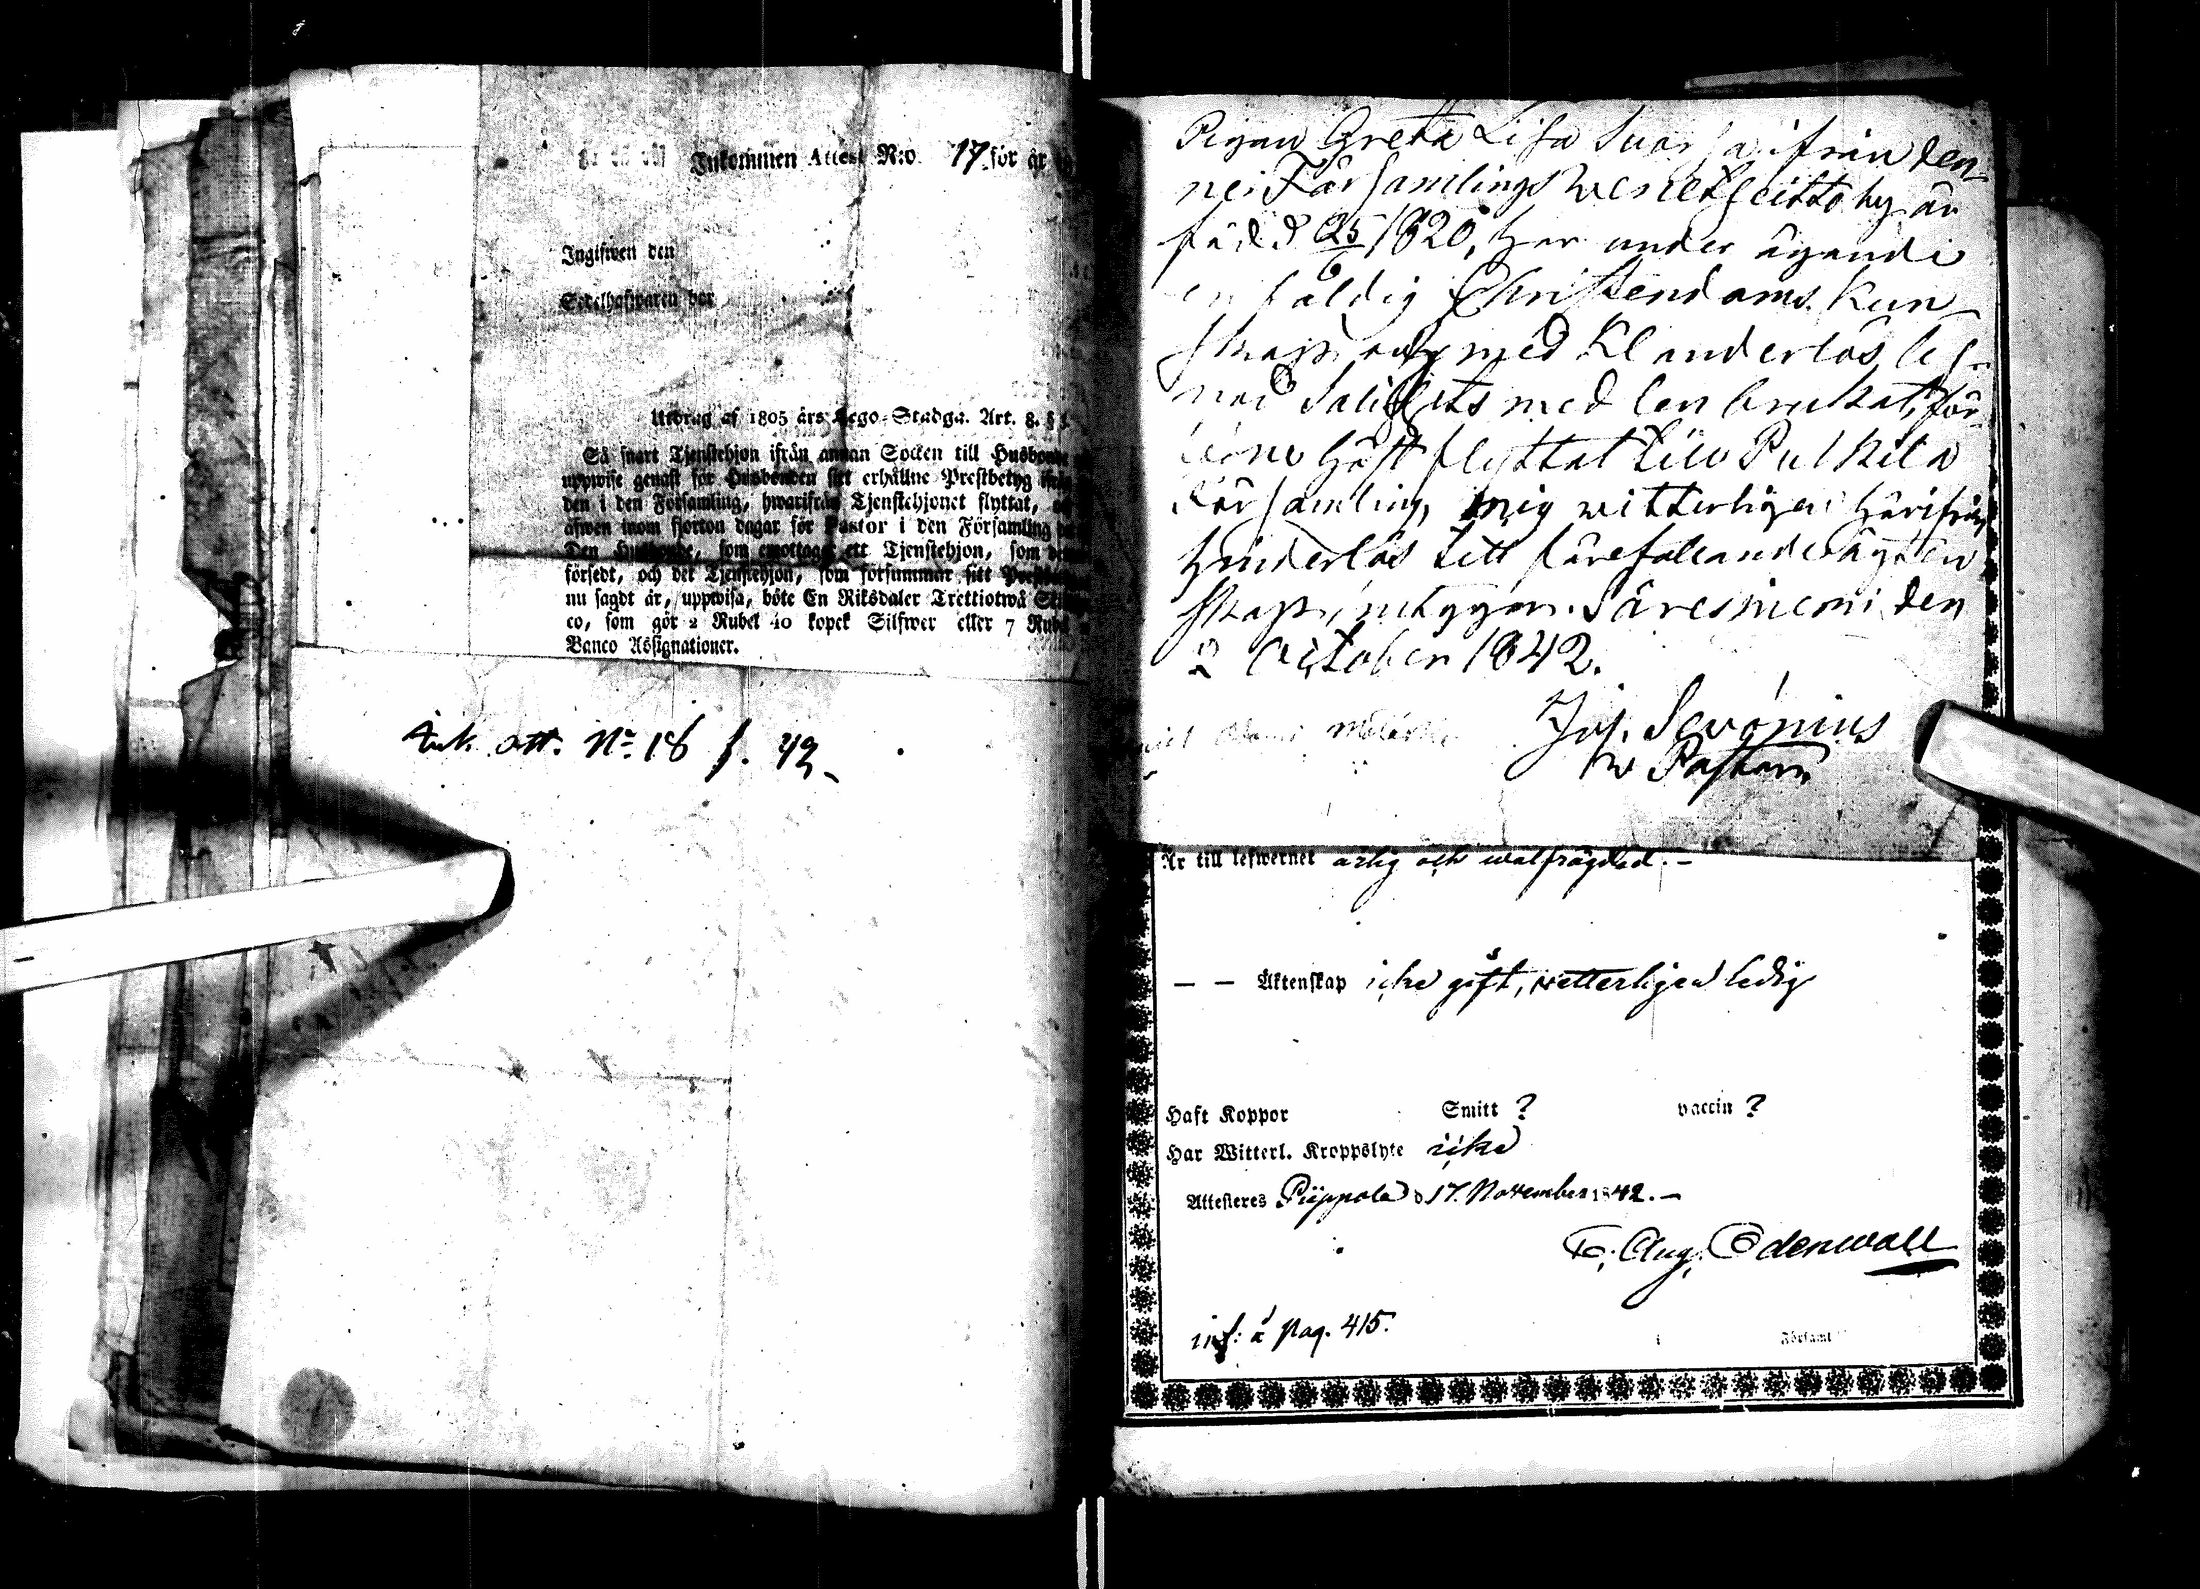 Inkommen Attest N:o 17 för år
Ingifwen den
Sedelhafwaren bor
Utdrag af 1805 års Lego-Stadga. Art. 8. §
Så snart Tjenstehjon ifrån annan Socken till Husbonde
uppwise genast för Husbonden sitt erhållne Prestbetyg
den i den Församling, hwarifrån Tjenstehjonet flyttat,
äfwen inom fjorton dagar för Pastor i den Församling
Den Husbonde, som emottager ett Tjenstehjon, som
försedt, och det Tjenstehjon, som försummar sitt
nu sagdt är, uppwisa, böte En Riksdaler Trettiotwå
co, som gör 2 Rubel 40 kopek Silfwer eller 7
Banco Assignationer.
Ink. att. No 18 f. 42
Pigan Greta Lisa ifrån den
nei Församlings by är
född d 25/6 1820, har under ägande
enfaldig Christendoms Kun
skap och med Klanderlös lef-
nad Salighets medlen brukat, för-
höst flyttat till Pulkila
Församling, mig witterligen härifrån
hinderlös till förefallande ägten
skap, intygar. Säresniemi den
2 October 1842.
Jos. Sevonius
Pastor
Är till lefwernet ärlig och wälfrägdad. –
– – Äktenskap icke gift, wetterligen ledig
Haft Koppor Smitt ? vaccin ?
Har Witterl. Kroppslyte icke
Attesteres Piippola d 17. November 1842. –
F. Aug. Edenwall
inf: å Pag. 415.
Församl